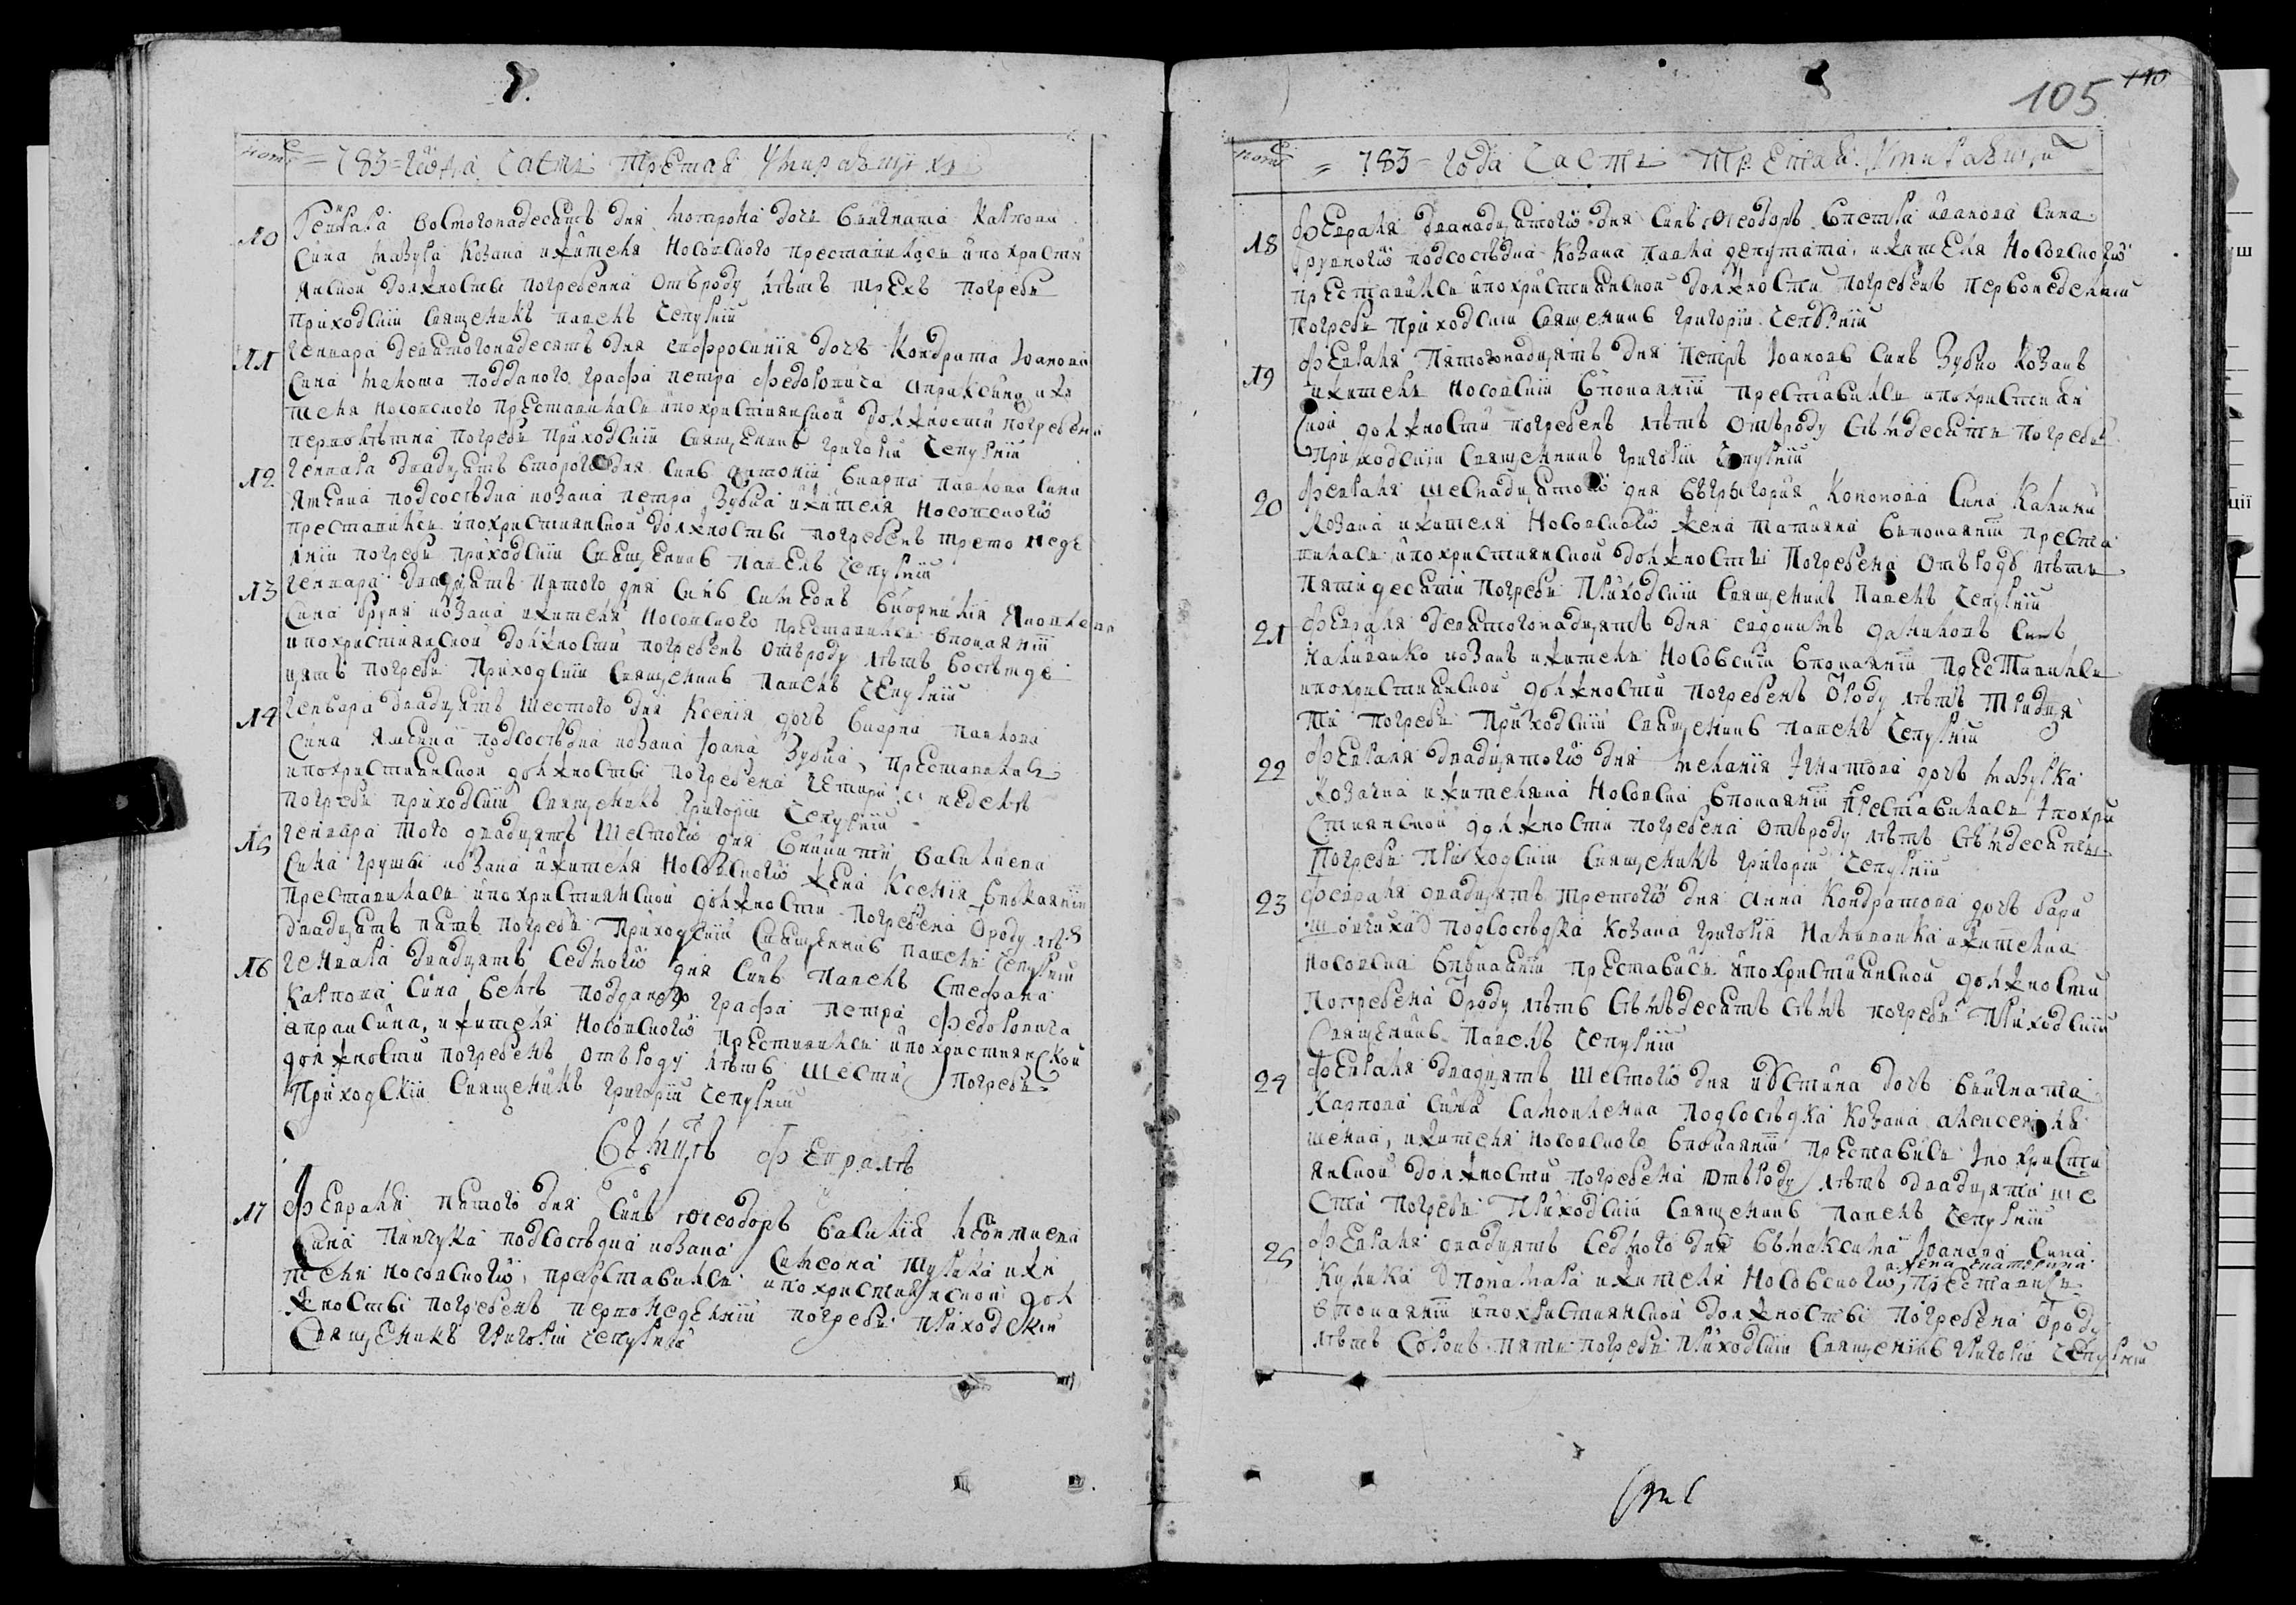 783 года части третая умираȣщих
10 Генъваря востогонадесять дня мотрона дочь ȣигната карпова
сина мазура козака и жителя носовского преставилась и по христи
янской должности погребенна отъ роду лѣтъ трехъ погребъ
приходскій священикъ павелъ чепурнїй
11 генвара девятогонадесять дня евфросинїя дочь кондрата Iоанова
сина поддданого графа петра федоровича апраксина и жи
теля носовского преставилась и по христианской должности погребена
перволѣтна погребъ приходскій священикъ григорїй чепурнїй
12 генвара двадцять второго дня синъ антонїй ȣкарпа павлова сина
ятченка подсосѣдка козака петра зубка и жителя носовского
преставился и по христианской должности погребенъ трето неде
лнїй погребъ приходскій священикъ павелъ чепурнїй
13 генвара двадцять пятого дня синъ симеонъ ȣкорнилїя яковлева
сина козака и жителя носовского преставился в покаянїи
и по христианской должности погребенъ отъ роду лѣтъ восемде
цять погребъ приходскій священикъ павелъ чепурнїй
14 генвара двадцять шестого дня ксенїя дочъ ȣкарпа павлова
сина подсосѣдка козака Iоана зубка, преставилась
и по христианской должности погребена четири недель
погребъ приходскій священикъ григорїй чепурнїй
15 генвара того двадцять шестого дня ȣникити василиева
сина грушы козака и жителя носовского жена ксенїя в покаянїи
преставилась и по христианской должности погребена ѿ роду лѣтъ
двадцять пять погребъ приходскій священикъ павелъ чепурнїй
16 генвара двадцять седмого дня синъ павелъ ȣстефана
карпова сина поддданого графа петра федоровича
апраксина, и жителя носовского преставился и по христианской
должности погребенъ отъ роду лѣтъ шести погребъ
приходскїй священикъ григорїй чепурнїй
мсць февраль
17 февраля пятого дня синъ ѳеодоръ ȣ василїя леонтиева
сина пинчука подсосѣдка козака симеона и жи
теля носовского, преставился и по христианской дол
жности погребенъ перво неделнїй погребъ приходскїй
священикъ григорїй чепурнїй
105
110
783 года части третая умираȣщих
18 февраля дванадцятого дня синъ ѳеодоръ ȣпетра иванова сина
подсосѣдка козака павла депутата, и жителя носовского
преставился и по христианской должности погребенъ первонеделнїй
погребъ приходскїй священикъ григорїй чепурнїй
19 февраля пятогонадцять дня петръ Iоановъ синъ зубко козакъ
и житель носовскїй в покаянїи преставился и по христиан
ской должности погребенъ лѣтъ отъ роду семдесяти погребъ
приходскїй священикъ григорїй чепурнїй
20 февраля шеснадцятого дня ȣ григорїя кононова сина калини
козака и жителя носовского жена татияна в покаянїи преста
вилась и по христианской должности погребена отъ роду лѣтъ
пятидесяти погребъ приходскїй священикъ павелъ чепурнїй
21 февраля девятогонадцять дня евдокимъ даниловъ синъ
наливайко козакъ и житель носовскїй в покаянїи преставился
и по христианской должности погребенъ ѿ роду лѣтъ тридця
ти погребъ приходскїй священикъ павелъ чепурнїй
22 февраля двадцятого дня меланїя игнатова дочъ мазурка
козачка и жителка носовска в покаянїи преставилась и по хри
стианской должности погребена отъ роду лѣтъ семдесяти
погребъ приходскїй священикъ григорїй чепурнїй
23 февраля двадцять третого дня анна кондратова дочъ
подсосѣдка козака григорїя наливайка и жителка
носовска в покаянїи преставись и по христианской должности
погребена ѿ роду лѣтъ семъдесятъ семъ погребъ приходскїй
священикъ павелъ чепурнїй
24 февраля двадцять шестого дня иȣстина дочъ ȣигната
карпова сина самойленка подсосѣдка козака алексея
шенка, и жителя носовского в покаянїи преставись и по христи
янской должности погребена отъ роду лѣтъ двадцяти ше
сти погребъ приходскїй священикъ павелъ чепурнїй
25 февраля двадцять седмого дня ȣ максима Iоанова сина
жена екатерина
кулика понамара и жителя носовского, преставись
в покаянїи и по христианской должности погребена ѿ роду
лѣтъ сорокъ пяти погребъ приходскїй священикъ григорїй чепурнїй